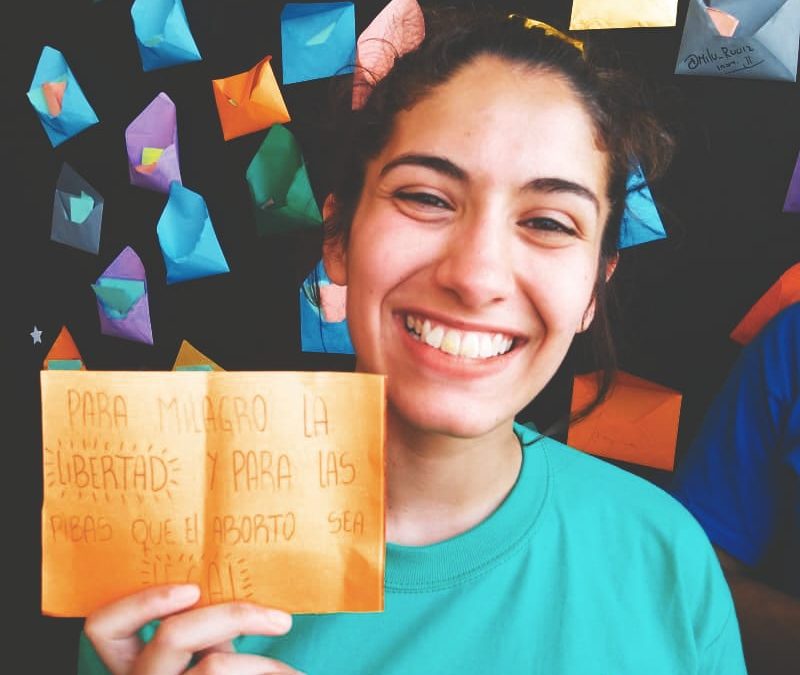 @Milu_Ruuiz
PARA MILAGRO LA
LIBERTAD Y PARA LAS
PIBAS QUE El ABORTO SEA
LEGAL